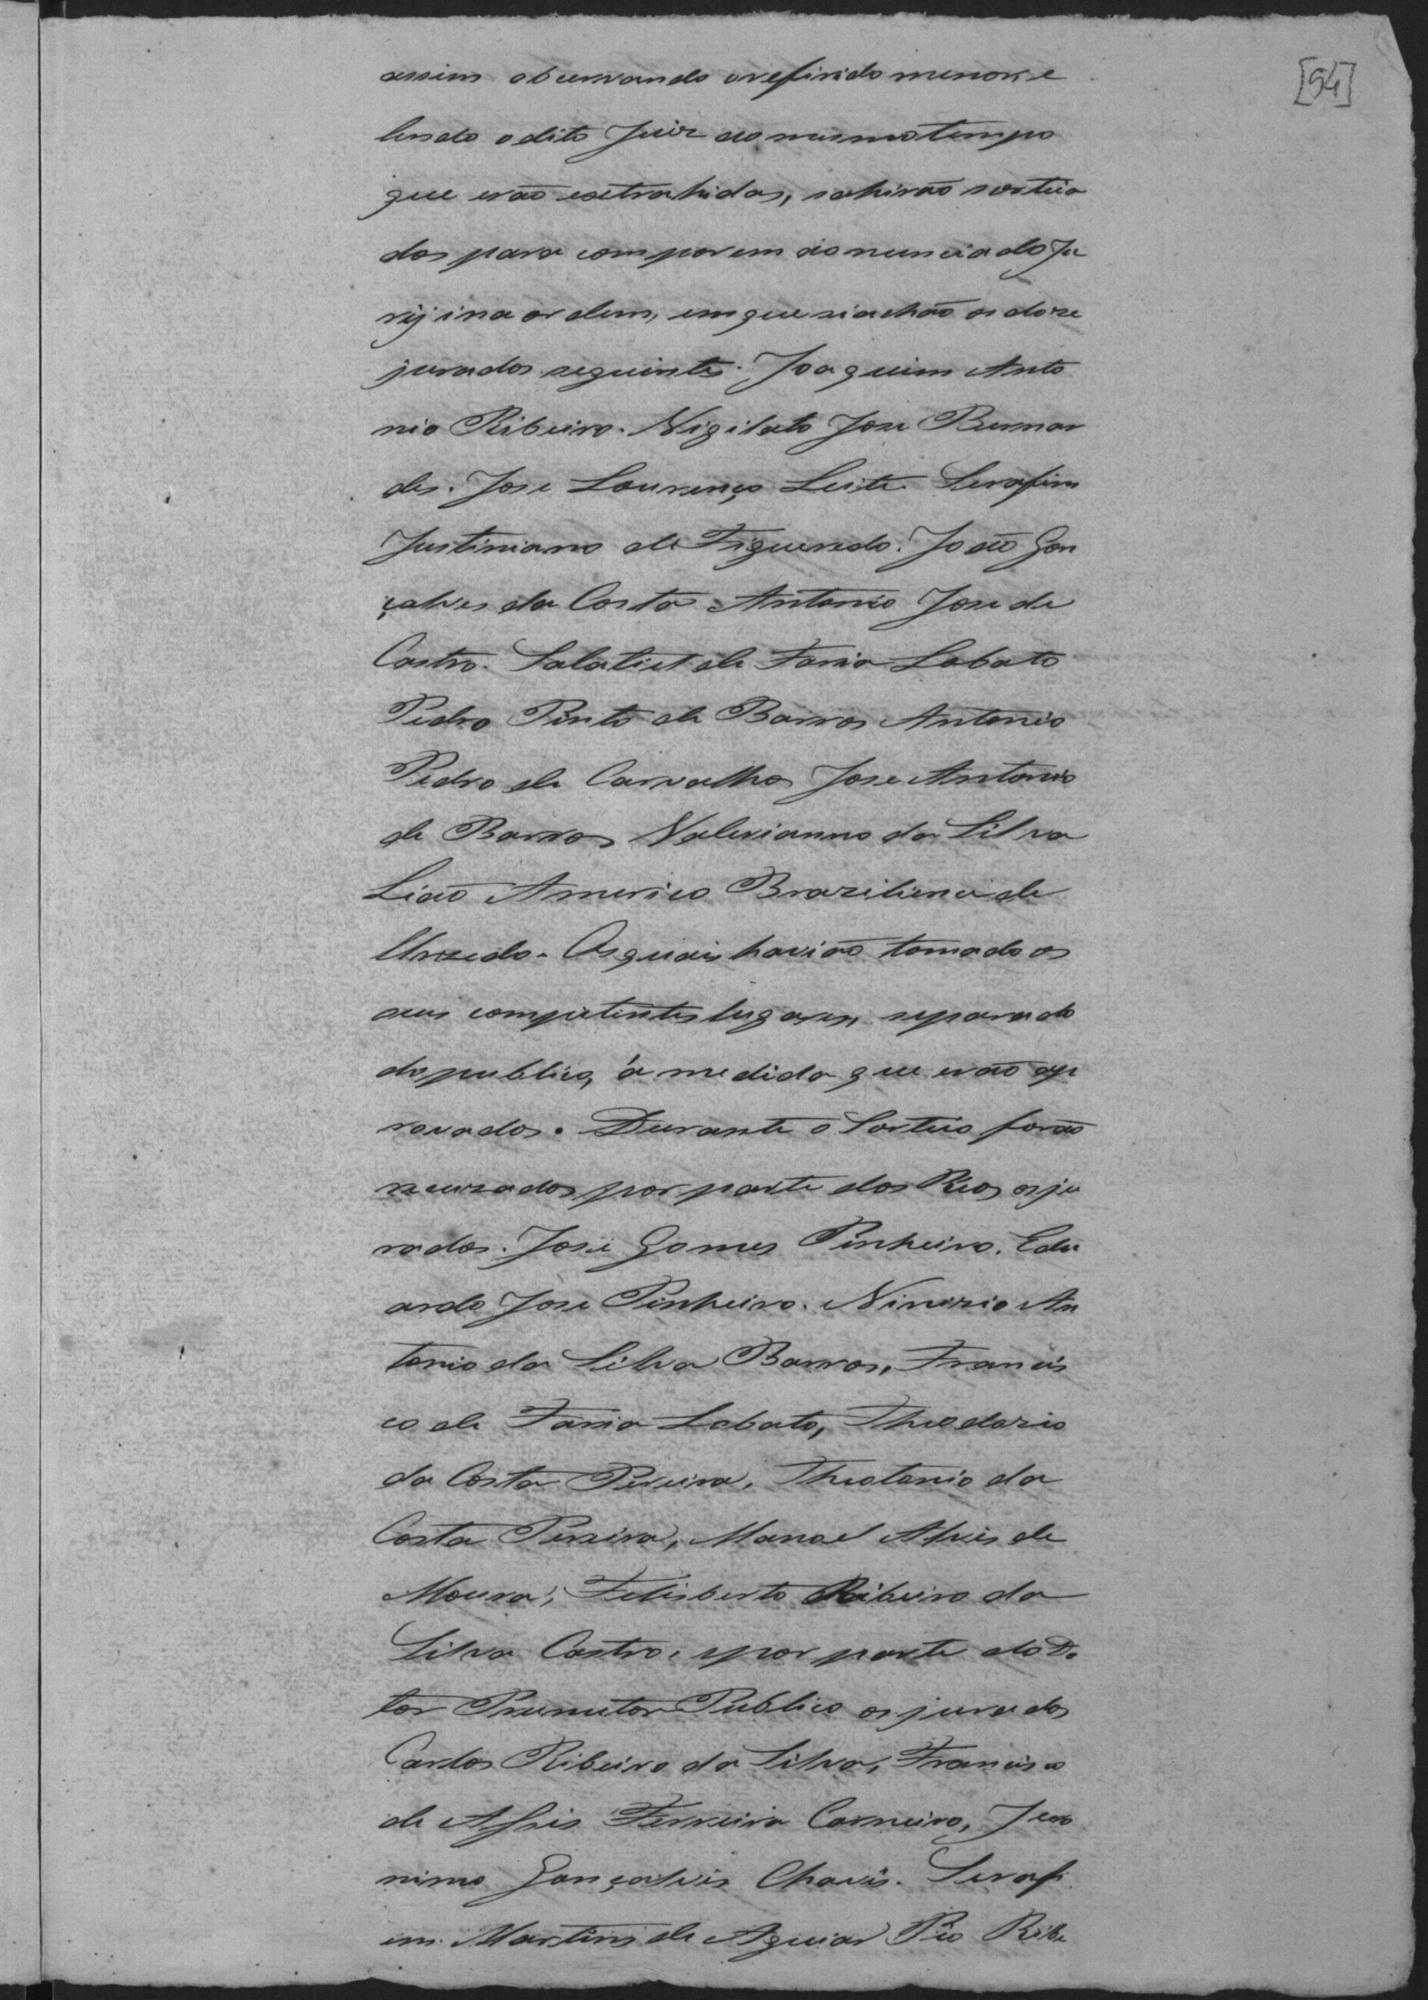 [54]
assim observando oreferido menor, e
lendo o dito Juiz ao mesmo tempo
que erão extrahidas, sahirão sortea
dos para comporem ao do Ju
ry, ina ordem, emque seachão os doze
jurados seguintes. Joaquim Anto
nio Ribeiro. Nigilato Jose Bernar
des. Jose Lourenço Leite. Serafim
Justiniano de Figueredo. João Gon
çalves da Costa. Antonio Jose de
Castro. Salatiel de Faria Lobato
Pedro Pinto de Barros Antonio
Pedro de Carvalho Jose Antonio
de Barros Valerianno da Silva
Lião Americo Braziliense de
Urzedo. Osquais havião tomado os
seus competentes lugares, separado
do publico, á medida que erão ap
rovados. Durante o Sorteio forão
recuzados por parte dos Reos os ju
rados. Jose Gomes Pinheiro. Edu
ardo Jose Pinheiro. Nimizio An
tonio da Silva Barros, Francis
co de Faria Lobato, Theodozio
da Costa Pereira, Theotonio da
Costa Pereira, Manoel Alves de
Moura, Felisberto Ribeiro da
Silva Castro, epor parte do Do
tor Promutor Publico os jurados
Carlos Ribeiro da Silva, Francisco
de Assis Ferreira Carneiro, Jero
nimo Gonçalves Chaves. Seraf
im Martins de Aguiar Pio Ribe